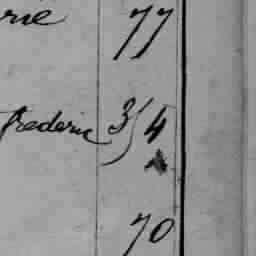 rie 77
frederic 3/4
70